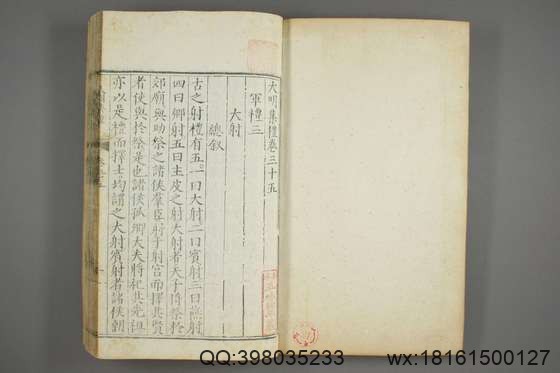 大明集禮卷三十五
軍禮三
大射
總叙
古之射禮有五一曰大射二曰賓射三曰燕射
四曰鄉射五曰主皮之射大射者天子將祭於
郊廟與助祭之諸侯羣臣射于射宫而擇其賢
者使與於祭是也諸侯孤卿大夫將祀其先祖
亦以是禮而擇士均謂之大射賓射者諸侯朝
QQ:398035233
wx:18161500127